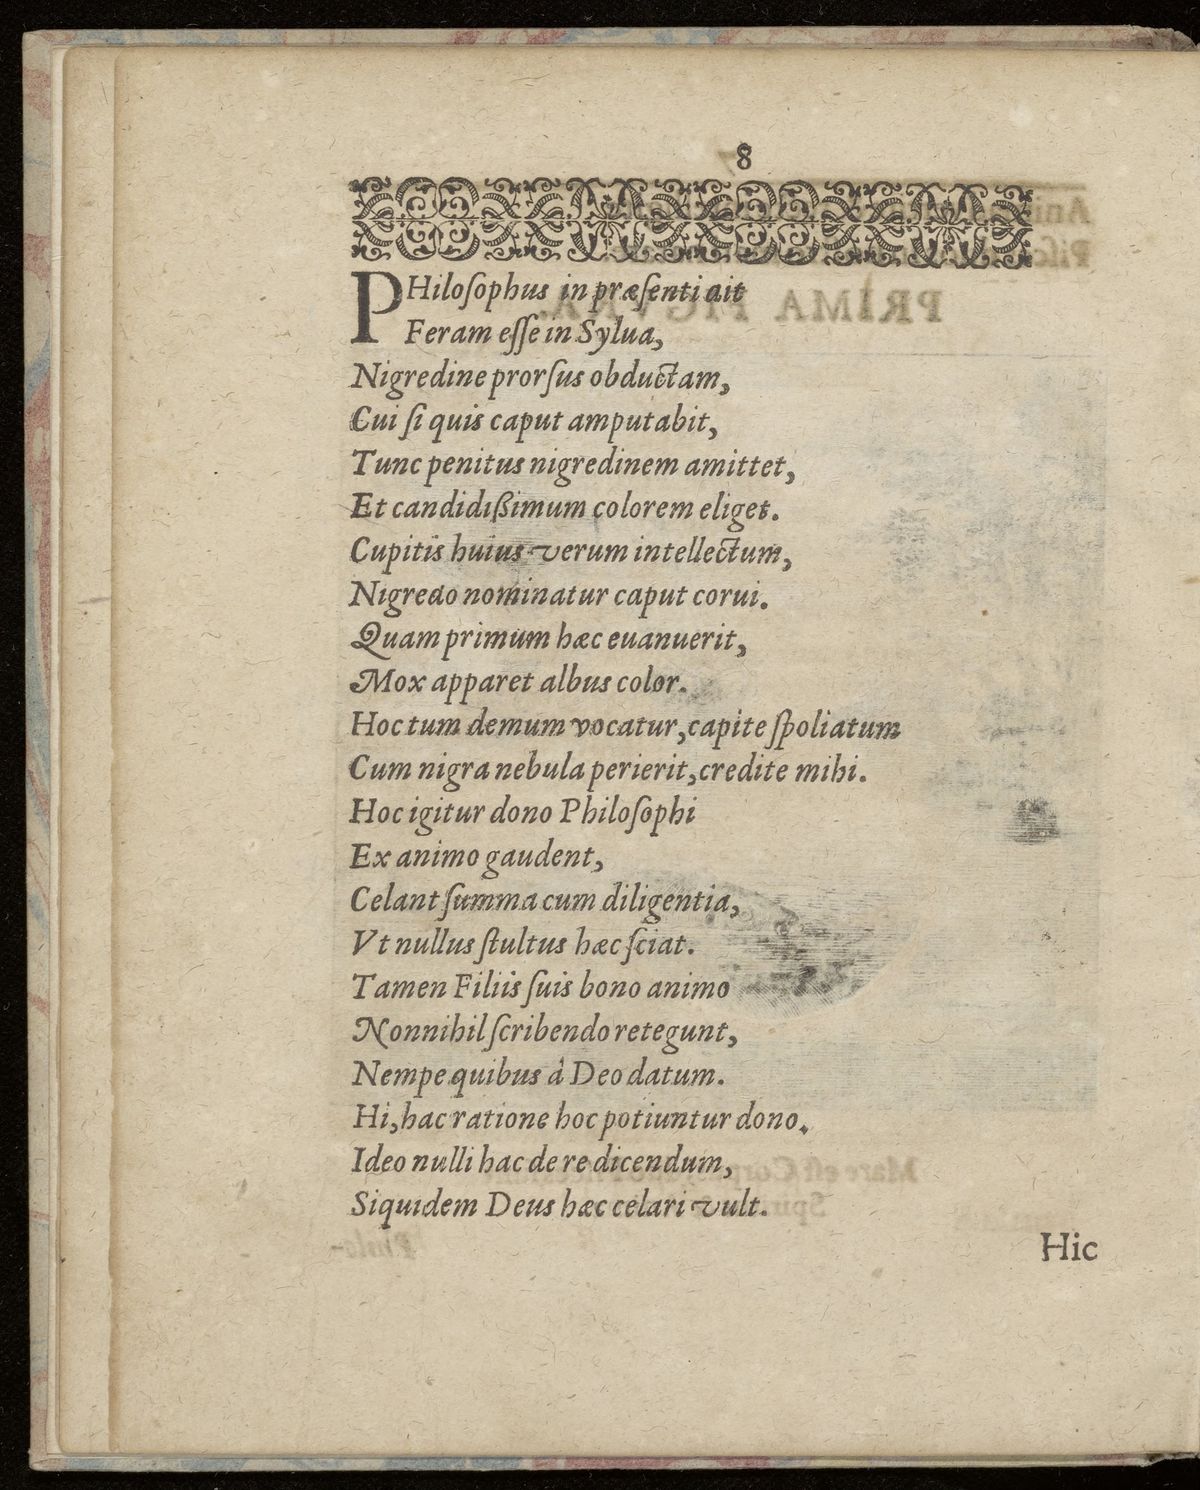 8
PHiloſophus in præſenti ait
Feram eſſe in Sylua,
Nigredine prorſus obductam,
Cui ſi quis caput amputabit,
Tunc penitus nigredinem amittet,
Et candidißimum colorem eliget.
Cupitis huius verum intellectum,
Nigredo nominatur caput corui.
Quam primum hæc euanuerit,
Mox apparet albus color.
Hoc tum demum vocatur, capite ſpoliatum
Cum nigra nebula perierit, credite mihi.
Hoc igitur dono Philoſophi
Ex animo gaudent,
Celant ſumma cum diligentia,
Vt nullus ſtultus hæc ſciat.
Tamen Filiis ſuis bono animo
Nonnihil ſcribendo retegunt,
Nempe quibus à Deo datum.
Hi, hac ratione hoc potiuntur dono.
Ideo nulli hac de re dicendum,
Siquidem Deus hæc celari vult.
Hic